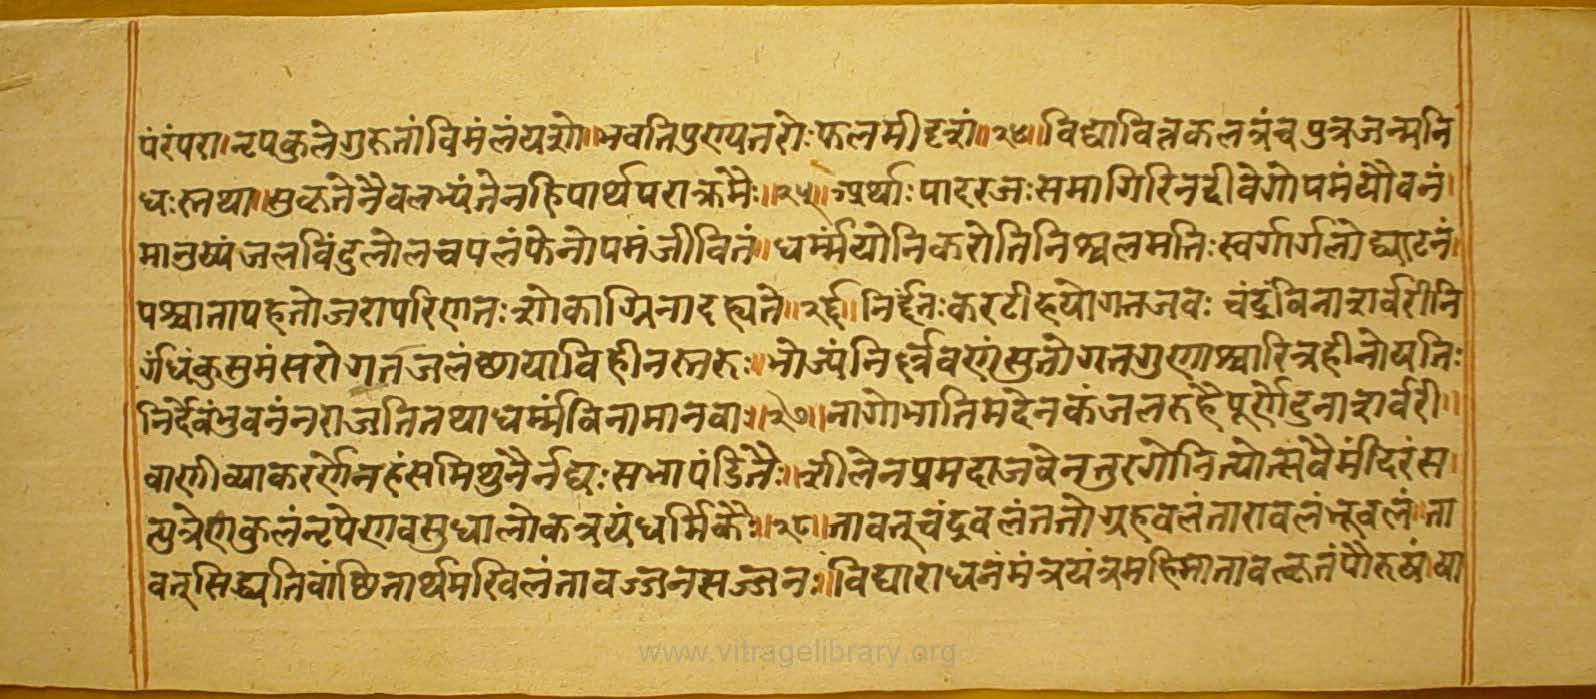 परंपरा।नृपकुलेगुरुतांविमंलंयशो॥भवतिपुण्यतरोःफलमीदृशं॥२४॥विद्यावित्तकलत्रंचपुत्रजन्मनि
धःस्तथा॥सुकृतेनैवलभ्यंतेनहिपार्थपराक्रमैः॥२५॥अर्थाःपादरजःसमागिरिनदीवेगोपमंयौवनं।
मानुष्यंजलविंदुलोलचपलंफेनोपमंजीवितं॥धर्म्मंयोनिकरोतिनिश्चलमतिःस्वर्गार्गलोद्घाटनं।
पश्चातापहतोजरापरिणतःशोकाग्निनादह्यते॥२६॥निर्दंतःकरटीहयोगतजवःचंद्रंविनाशर्वरीनि
र्गंधंकुसुमंसरोगतजलंछायाविहीनस्तरुः॥भोज्यंनिर्लवणंसुतोगतगुणश्चारित्रहीनोयतिः
निर्देवंभुवनंनराजतितथाधर्म्मंविनामानवाः॥२७॥नागोभातिमदेनकंजलरुहैपूर्णेंदुनाशर्वरी॥
वाणीव्याकरणेनहंसमिथुनैर्नद्यःसभापंडितैः॥शीलेनप्रमदाजवेनतुरगोनित्योत्सवैर्मंदिरंस।
त्पुत्रेणकुलंनृपेणवसुधालोकत्रयंधर्मिकैः॥२८॥तावत्चंद्रवलंततोग्रहवलंतारावलंभूवलं॥ता
वत्सिद्ध्यतिवांछितार्थमखिलंतावज्जनसज्जनः॥विद्याराधनंमंत्रयंत्रमहिमातावत्कृतंपौरुषंया
www.vitragelibrary.org